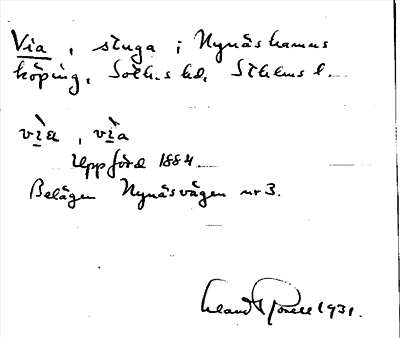 Via, stuga i Nynäshamns
köping, Soth.s hd, Sthlms l.
vìa, vìa
Uppförd 1884.
Belägen Nynäsvägen nr 3.
1931.